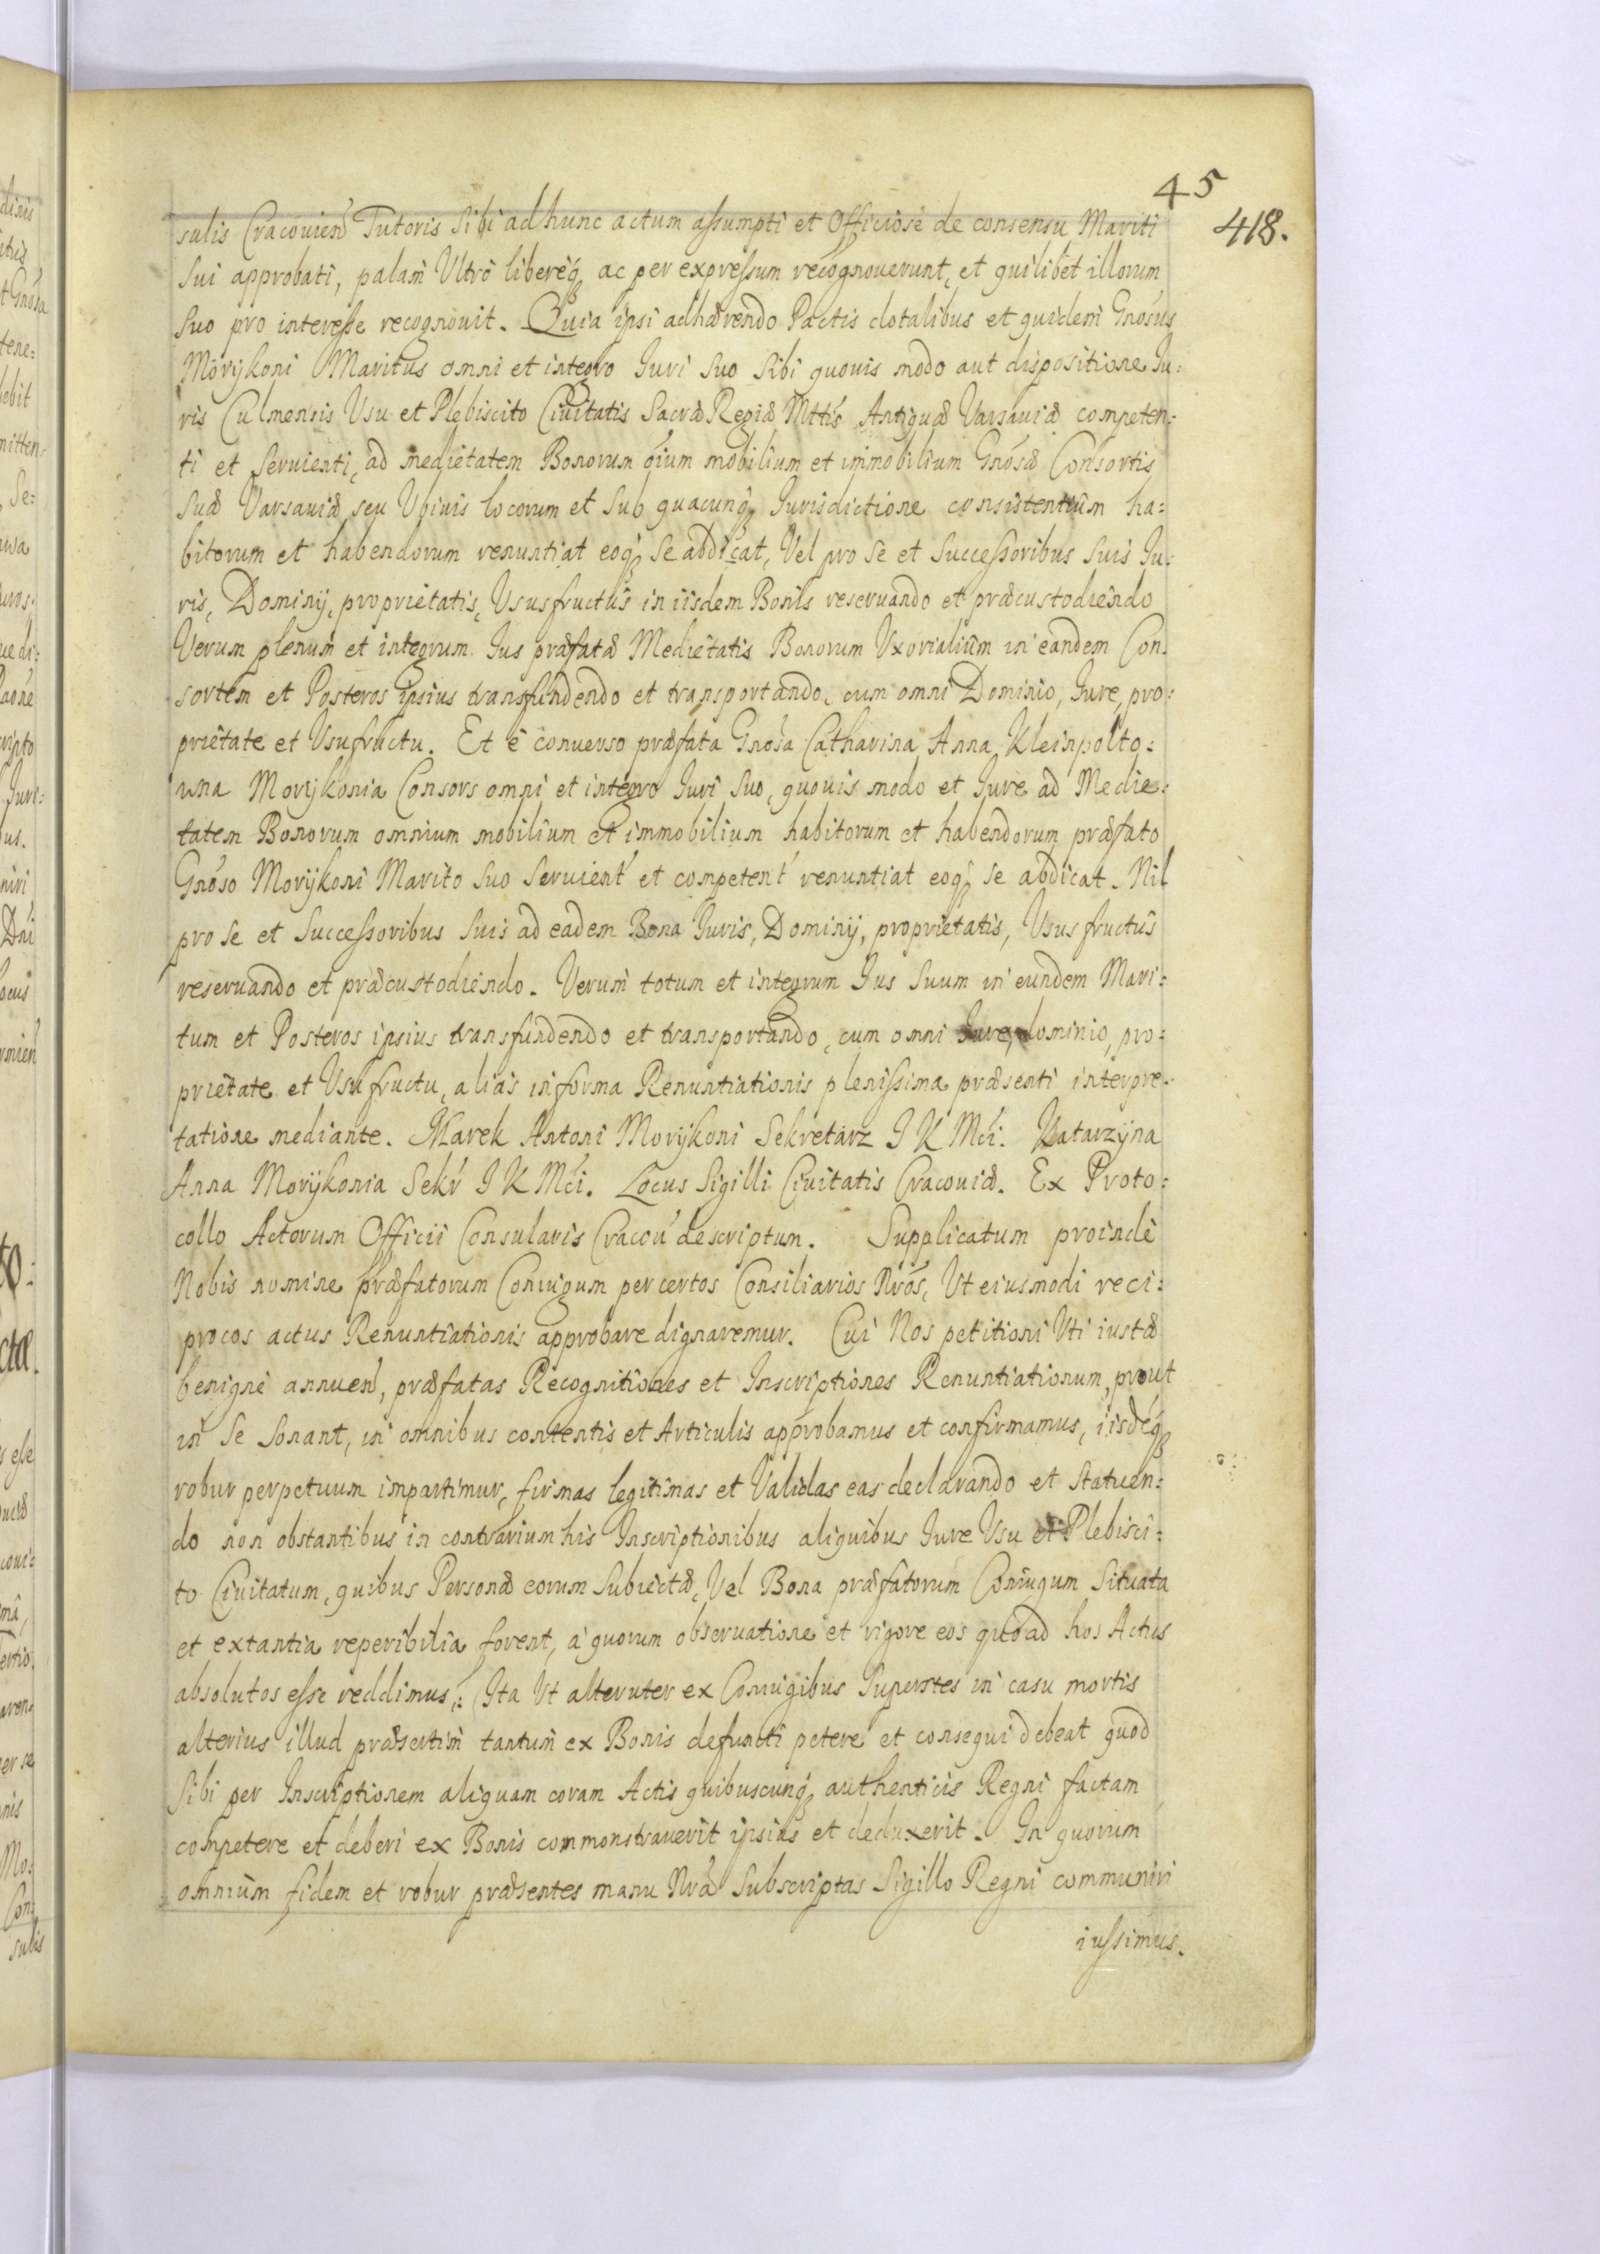 45
418.
sulis Cracouien Tutoris Sibi ad hunc actum assumpti et Officiose de consensu Mariti
Sui approbati, palam Vltro libereq ac per expressum recognouerunt, et quilibet illorum
Suo pro interesse recognouit. Quia ipsi adhærendo Pactis dotalibus et quidem Gnosus
Morykoni Maritus omni et integro Iuri Suo Sibi quouis modo aut dispositione Iu:
ris Culmensis Vsu et Plebiscito Ciuitatis Sacræ Regiæ Mttis Antiquæ Varsauiæ competen:
ti et Seruienti, ad medietatem Bonorum oium mobilium et immobilium Gnosæ Consortis
Suæ Varsauiæ seu Vbiuis locorum et Sub quacunq Iurisdictione consistentium ha:
bitorum et habendorum renuntiat eoq se abdicat, Vel pro se et Successoribus Suis Iu:
ris, Dominij, proprietatis, Vsusfructus in iisdem Bonis reseruando et præcustodiendo
Verum plenum et integrum Ius præfatæ Medietatis Bonorum Vxorialium in eandem Con:
sortem et Posteros ipsius transfundendo et transportando, cum omni Dominio, Iure, pro:
prietate et Vsufructu. Et e conuerso præfata Gnosa Catharina Anna Kleinpolto:
wna Morykonia Consors omni et integro Iuri Suo, quouis modo et Iure ad Medie:
tatem Bonorum omnium mobilium et immobilium habitorum et habendorum præfato
Gnoso Morykoni Marito Suo Seruient et competent renuntiat eoq se abdicat. Nil
pro se et Successoribus Suis ad eadem Bona Iuris, Dominij, proprietatis, Vsusfructus
reseruando et præcustodiendo. Verum totum et integrum Ius Suum in eundem Mari:
tum et Posteros ipsius transfundendo et transportando, cum omni Iure, dominio, pro:
prietate et Vsufructu, alias in forma Renuntiationis plenissima præsenti interpre:
tatione mediante. Marek Antoni Morykoni Sekretarz I K Mci. Katarzyna
Anna Morykonia Sekr I K Mci. Locus Sigilli Ciuitatis Cracouiæ. Ex Proto:
collo Actorum Officii Consularis Cracou descriptum. Supplicatum proinde
Nobis nomine præfatorum Coniugum per certos Consiliarios Nros, Vt eiusmodi reci:
procos actus Renuntiationis approbare dignaremur. Cui Nos petitioni Vti iustæ
benigne annuen, præfatas Recognitiones et Inscriptiones Renuntiationum, prout
in Se Sonant, in omnibus contentis et Articulis approbamus et confirmamus, iisdeq
robur perpetuum impartimur, firmas legitimas et Validas eas declarando et Statuen:
do non obstantibus in contrarium his Inscriptionibus aliquibus Iure Vsu et Plebisci:
to Ciuitatum, quibus Personæ eorum Subiectæ, Vel Bona præfatorum Coniugum Situata
et extantia reperibilia forent, a quorum obseruatione et rigore eos quoad hos Actus
absolutos esse reddimus,: Ita Vt alteruter ex Coniugibus Superstes in casu mortis
alterius illud præsertim tantum ex Bonis defuncti petere et consequi debeat quod
Sibi per Inscriptionem aliquam coram Actis quibuscunq authenticis Regni factam
competere et deberi ex Bonis commonstrauerit ipsius et deduxerit. In quorum
omnium fidem et robur præsentes manu Nra Subscriptas Sigillo Regni communiri
iussimus.